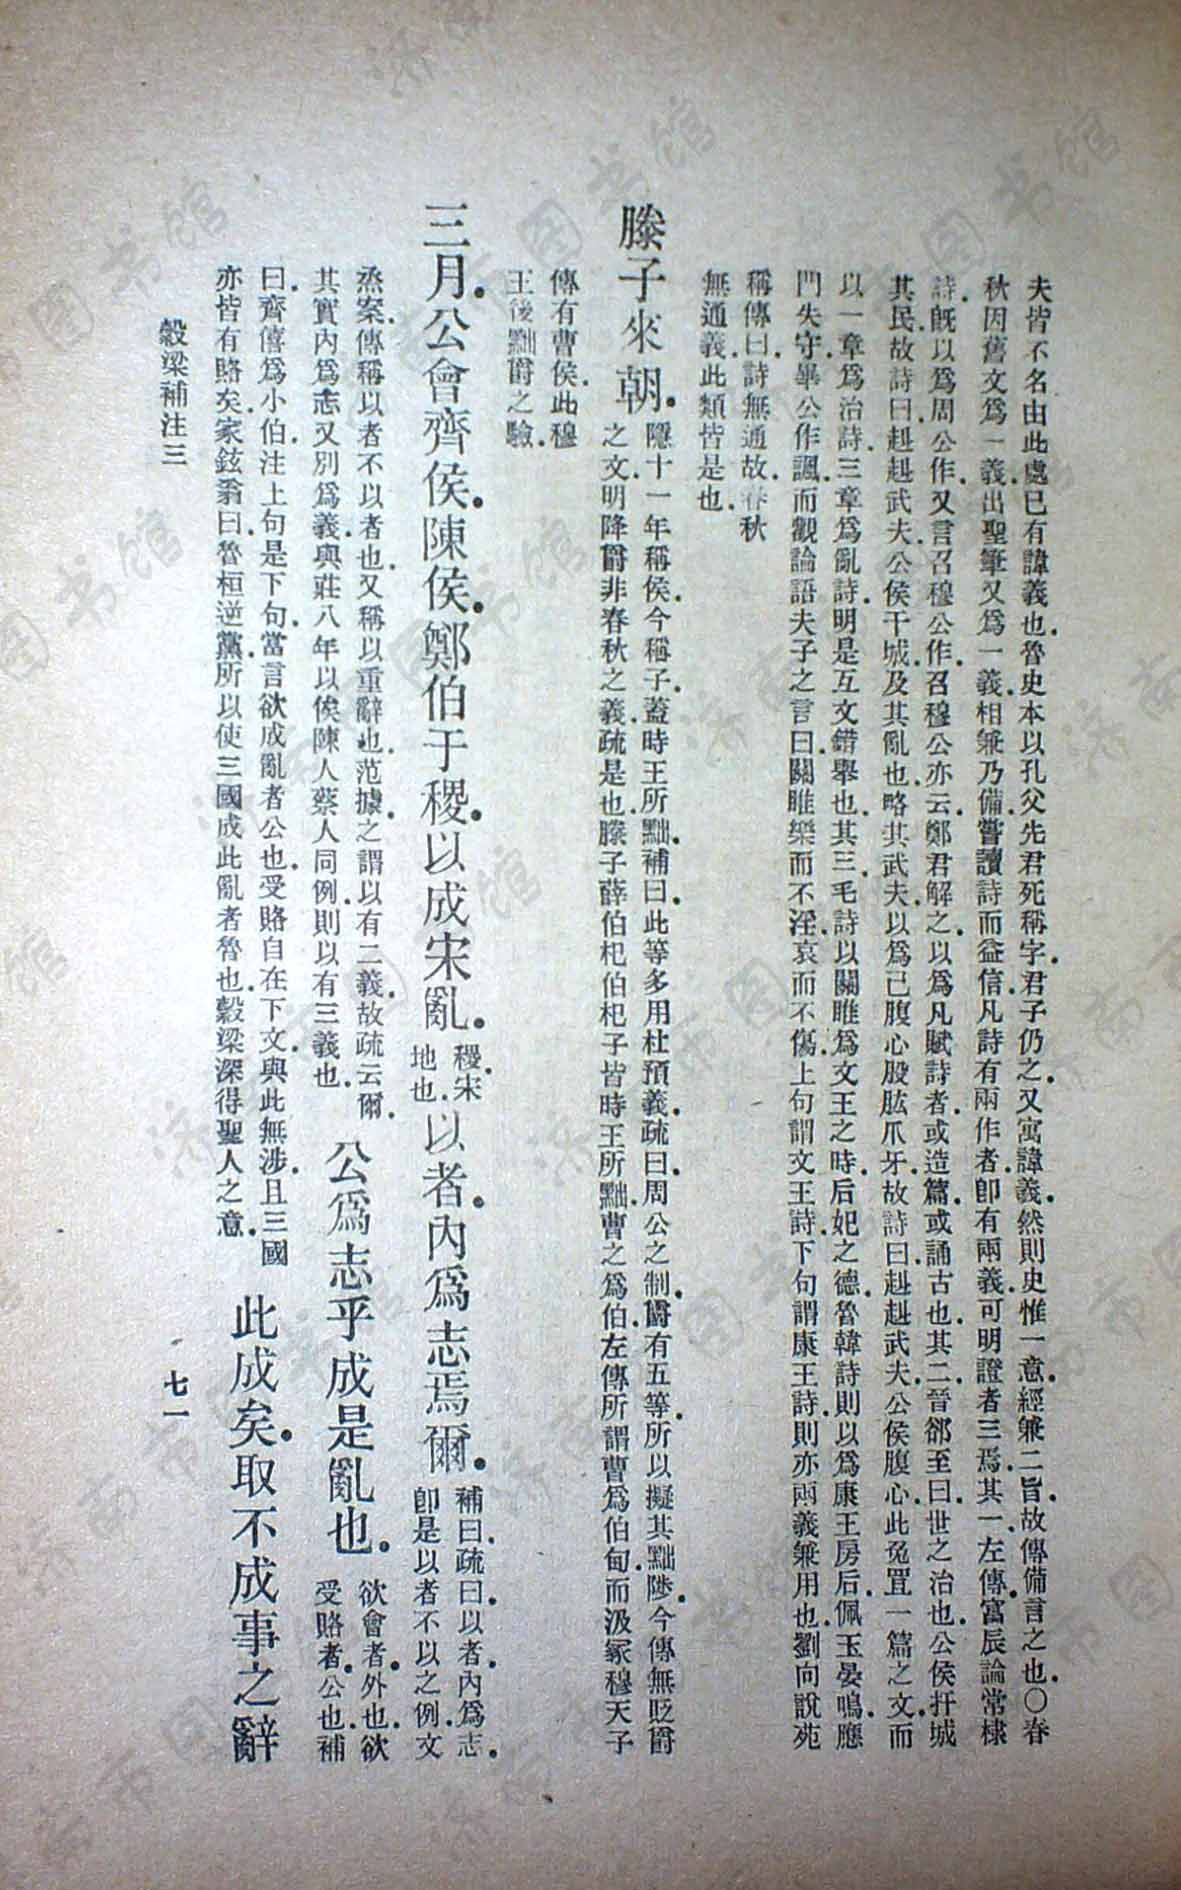 夫皆不名由此處已有諱義也魯史本以孔父先君死稱字君子仍之又寓諱義然則史惟一意經兼二旨故傳備言之也○春
秋因舊文爲一義出聖筆又爲一義相兼乃備嘗讀詩而益信凡詩有兩作者卽有兩義可明證者三焉其一左傳富辰論常棣
詩旣以爲周公作又言召穆公作召穆公亦云鄭君解之以爲凡賦詩者或造篇或誦古也其二晉郤至曰世之治也公侯扞城
其民故詩曰赳赳武夫公侯干城及其亂也略其武夫以爲己腹心股肱爪牙故詩曰赳赳武夫公侯腹心此兔罝一篇之文而
以一章爲治詩三章爲亂詩明是互文錯舉也其三毛詩以關雎爲文王之時后妃之德魯韓詩則以爲康王房后佩玉晏鳴應
門失守畢公作諷而觀論語夫子之言曰關雎樂而不淫哀而不傷上句謂文王詩下句謂康王詩則亦兩義兼用也劉向說苑
稱傳曰詩無通故春秋
無通義此類皆是也
滕子來朝
隱十一年稱侯今稱子蓋時王所黜補曰此等多用杜預義疏曰周公之制爵有五等所以擬其黜陟今傳無貶爵
之文明降爵非春秋之義疏是也滕子薛伯杞伯杞子皆時王所黜曹之爲伯左傳所謂曹爲伯甸而汲冢穆天子
傳有曹侯此穆
王後黜爵之驗
三月公會齊侯陳侯鄭伯于稷以成宋亂
稷宋
地也
以者內爲志焉爾
補曰疏曰以者內爲志
卽是以者不以之例文
烝案傳稱以者不以者也又稱以重辭也范據之謂以有二義故疏云爾
其實內爲志又別爲義與莊八年以俟陳人蔡人同例則以有三義也
公爲志乎成是亂也
欲會者外也欲
受賂者公也補
曰齊僖爲小伯注上句是下句當言欲成亂者公也受賂自在下文與此無涉且三國
亦皆有賂矣家鉉翁曰魯桓逆黨所以使三國成此亂者魯也穀梁深得聖人之意
此成矣取不成事之辭
穀梁補注三
七一